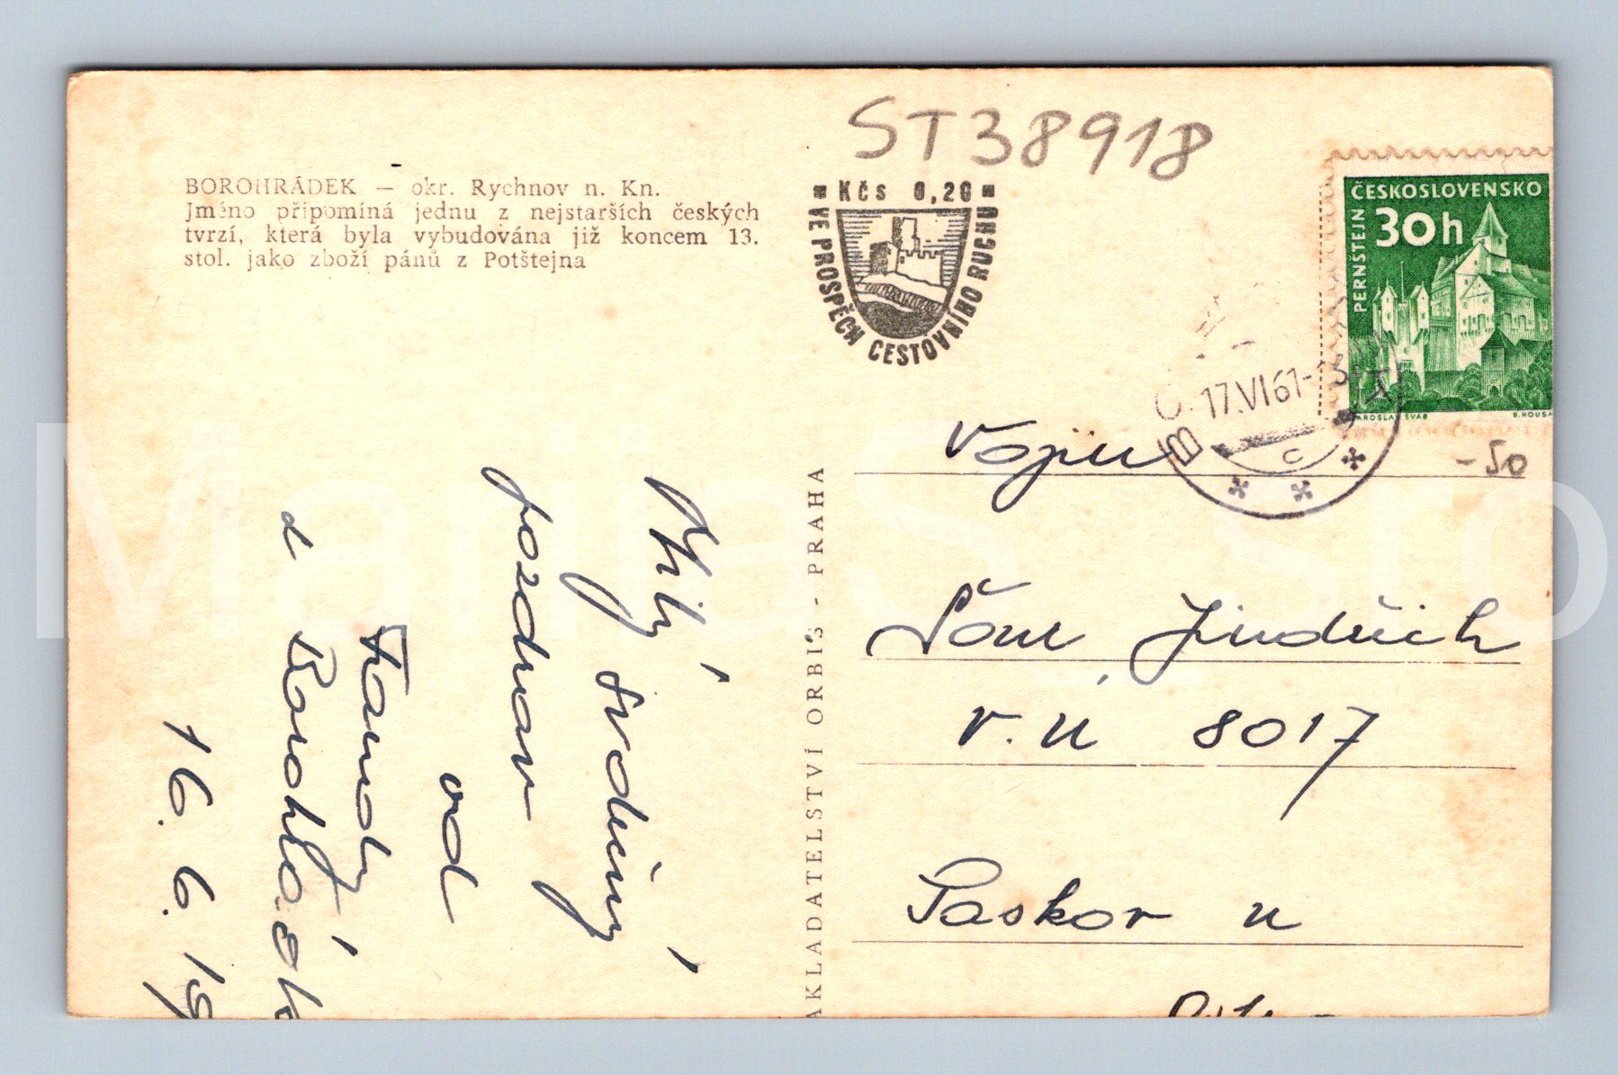 ST38918
BOROHRÁDEK — okr. Rychnov n. Kn.
Jméno připomíná jednu z nejstarších českých
tvrzí, která byla vybudována již koncem 13.
stol. jako zboží pánů z Potštejna
Kčs 0,20
VE PROSPĚCH CESTOVNÍHO RUCHU
ČESKOSLOVENSKO
30h
PERNŠTEJN
JAROSLAV ŠVÁB
17.VI 61-
-50
Milý srdečný
pozdrav
od
Fandy
z
16. 6. 19
AKLADATELSTVÍ ORBIS - PRAHA
Vojín
Jindřich
V.Ú 8017
Paskov u